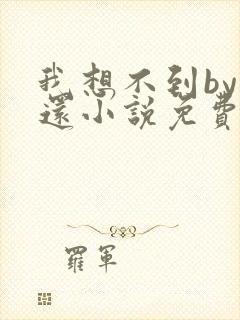 我想不到by
還小說免費
羅軍